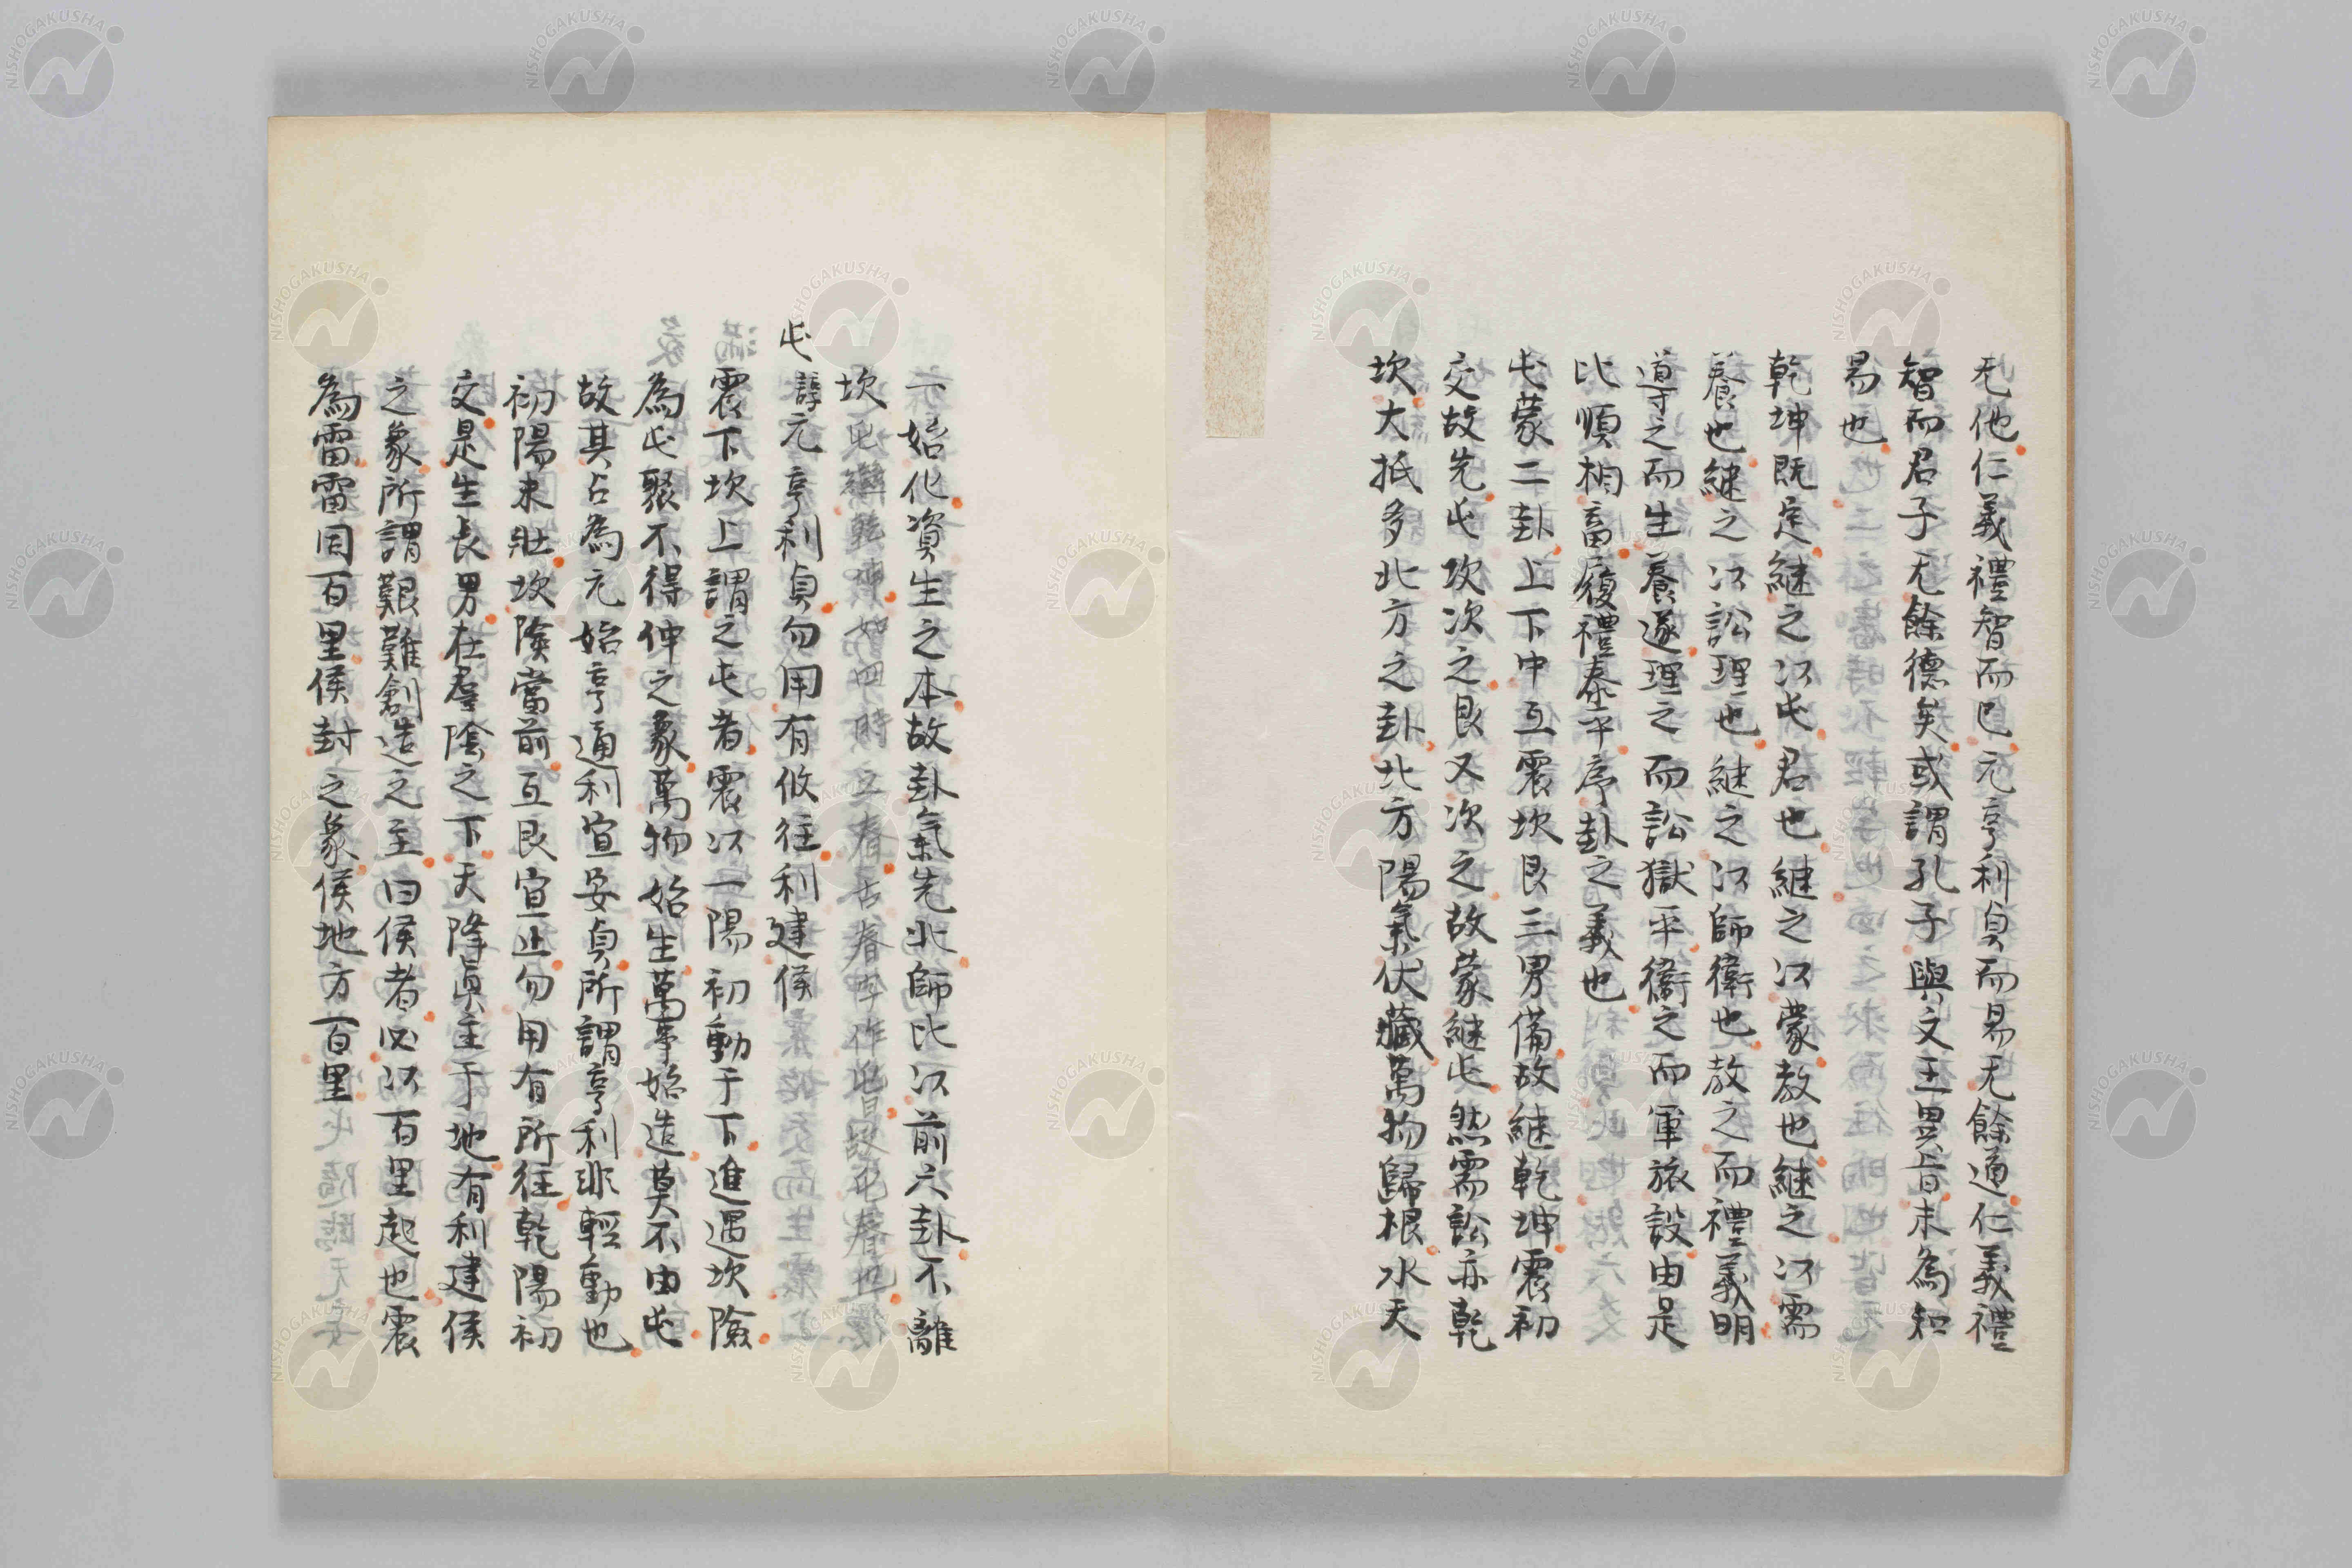 无他仁義禮智而已元亨利貞而易无餘道仁義禮
智而君子无餘德矣或謂孔子與文王異旨未為知
易也
乾坤既定継之以屯君也継之以蒙教也継之以需
養也継之以訟理也継之以師衛也教之而禮義明
導之而生養遂理之而訟獄平衛之而軍旅設由是
比順相畜履禮泰平序卦之義也
屯蒙二卦上下中互震坎艮三男備故継乾坤震初
交故先屯坎次之艮又次之故蒙継屯然需訟亦乾
坎大抵多北方之卦北方陽氣伏藏萬物歸根水天
一始化資生之本故卦氣先北師比以前六卦不離
坎
屯 元亨利貞勿用有攸往利建侯
震下坎上謂之屯者震以一陽初動于下進遇坎險
為屯聚不得伸之象萬物始生萬事始造莫不由屯
故其占為元始亨通利宜安貞所謂亨利非輕動也
初陽未壯坎險當前互艮宜止勿用有所往乾陽初
交是生長男在羣陰之下天降眞主于地有利建侯
之象所謂艱難創造之主曰侯者必以百里起也震
為雷雷同百里侯封之象侯地方百里
NISHOGAKUSHA